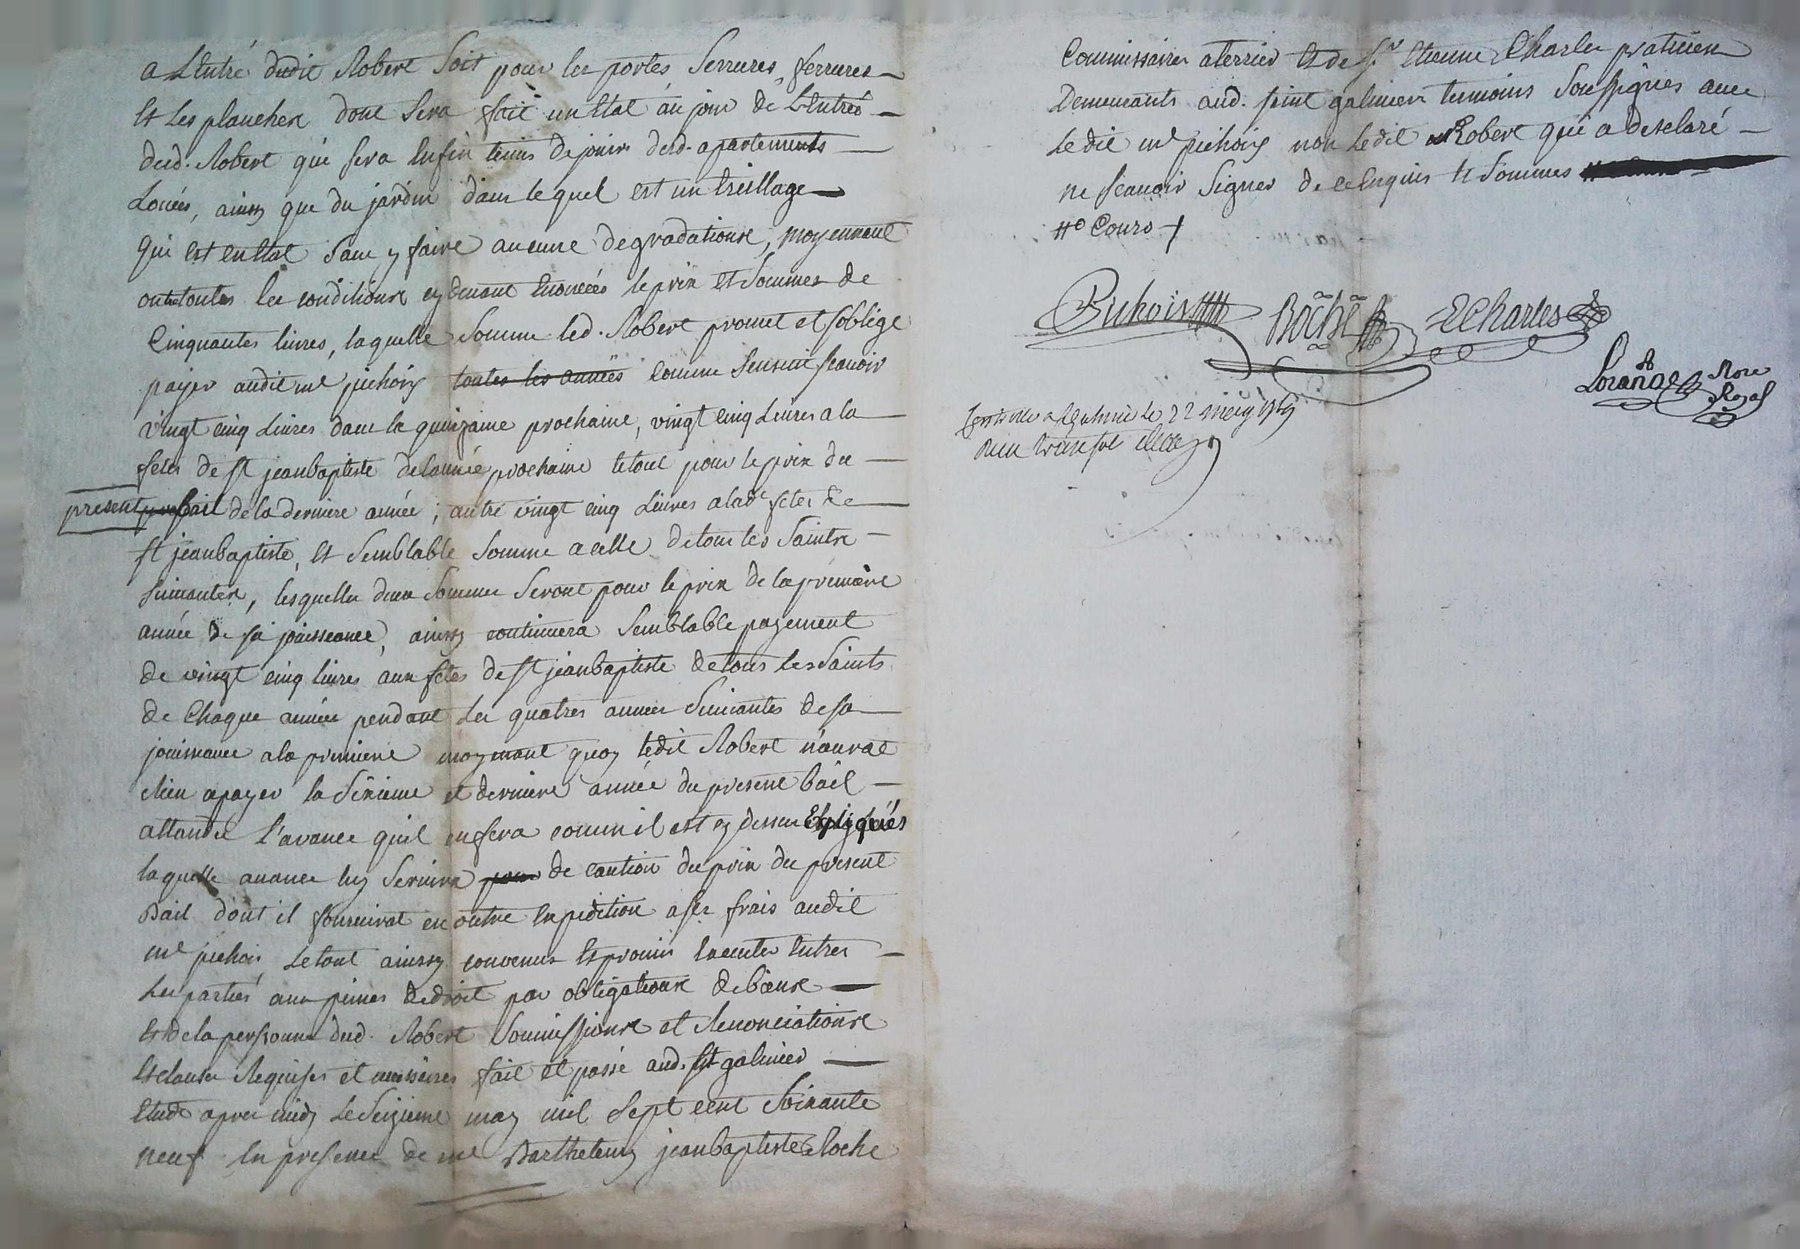 a Lentré dudit Robert soit pour les portes serrures ferrures
et les plancher dont sera fait un Etat au jour de Lentrée
dud. Robert qui sera Enfin tenus de jouir desd. apartements
Louées, ainsy que du jardin dans lequel est un treillage
qui est en Etat sans y faire aucune degradations, moyennant
outre toutes les conditions cydevant Enoncées le prix et sommes de
Cinquantes livres, laquelle somme led. Robert promet et soblige
payer audit me pichois toutes les années comme sensuit scavoir
vingt cinq Livres dans la quinzaine prochaine, vingt cinq Livres a la
fetes de st jeanbaptiste de lannée prochaine letout pour le prix du
present bail de la derniere année, autre vingt cinq Livres a lade fetes de
st jeanbaptiste, et semblable somme a celle de tous les saints
suivantes, lesquelles deux sommes seront pour le prix de la premiere
année de sa jouisseance, ainsy continuera semblable payement
de vingt cinq livres aux fetes de st jeanbaptiste de tous les saints
de chaque année pendant les quatres années suivantes de sa
jouissance a la premiere moyenant quoy ledit Robert n'aurat
Rien apayer la sixieme et derniere année du present bail
attandu l'avance quil en fera comm il est cy dessus Expliqués
laquelle avance luy servira pour de caution du prix du present
Bail dont il fournirat en outre Expedition a ses frais audit
me pichois Letout ainssy convenus et promis Executer Entres
Les partiés aux peines de droit par obligations de biens
et de la personne dud. Robert soumissions et Renonciations
et clauses Requises et necessaires fait et passé aud. st galmier
Etude apres midy Le seizieme may mil sept cent soixante
neuf En presence de me Barthelemy jeanbaptiste Roche
Commissaires a terrier et de sr Etienne Charles praticien
Demeurants aud. saint galmier temoins soussignes avec
Ledit me pichois non Ledit Robert qui a desclaré
ne scavoir signer de ce Enquis et sommes
Pichois
Roche
E Charles
Lorange
Nore Royal
le 22 may 1769